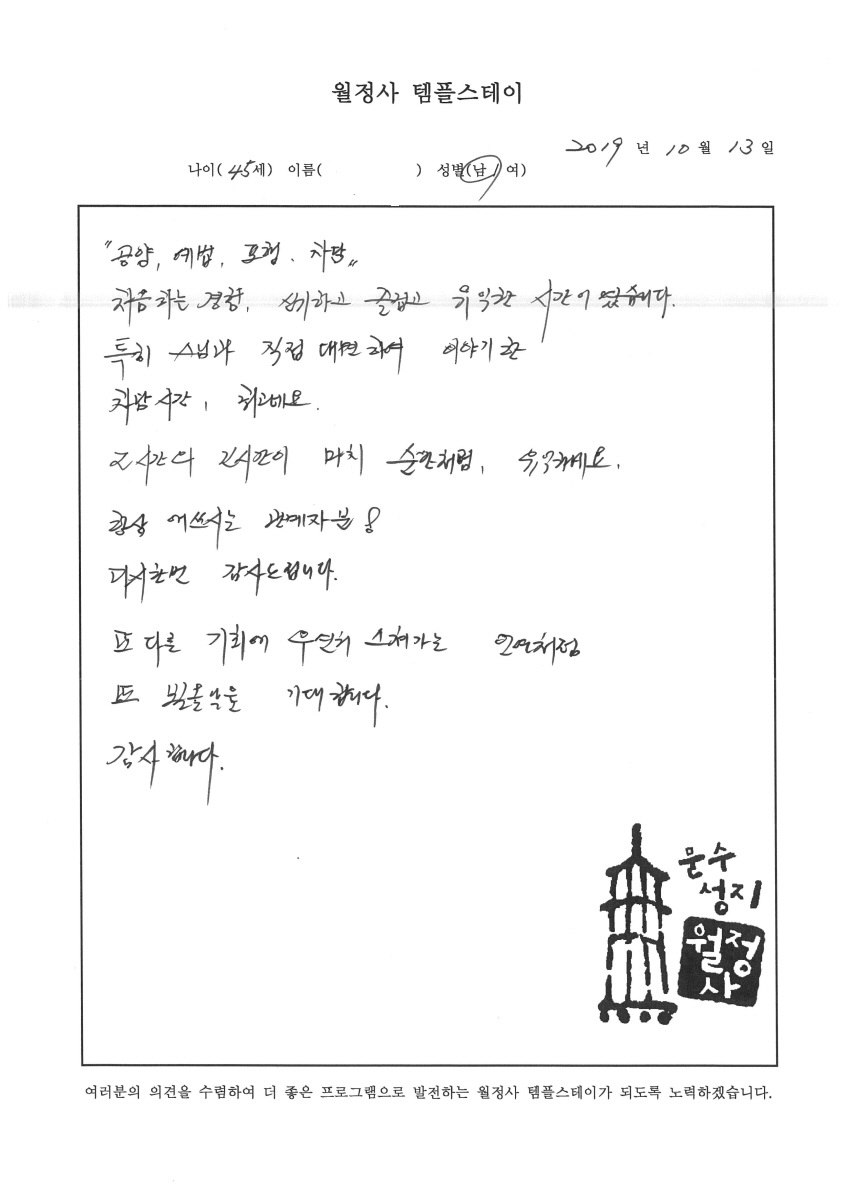 월정사 템플스테이
2019 년 10 월 13 일
나이( 45 세) 이름( ) 성별(남 / 여)
"공양, 예법, 포행. 차담"
처음하는 경험, 신기하고 즐겁고 유익한 시간이였습니다.
특히 스님과 직접 대면하여 이야기한
차담시간, 최고네요.
2시간의 2시간이 마치 순간처럼, 유익하네요.
항상 애쓰시는 관계자분
다시한번 감사드립니다.
또 다른 기회에 우연히 스쳐가는 인연처럼
또 기대합니다.
감사합니다.
문수
성지
월정
사
여러분의 의견을 수렴하여 더 좋은 프로그램으로 발전하는 월정사 템플스테이가 되도록 노력하겠습니다.